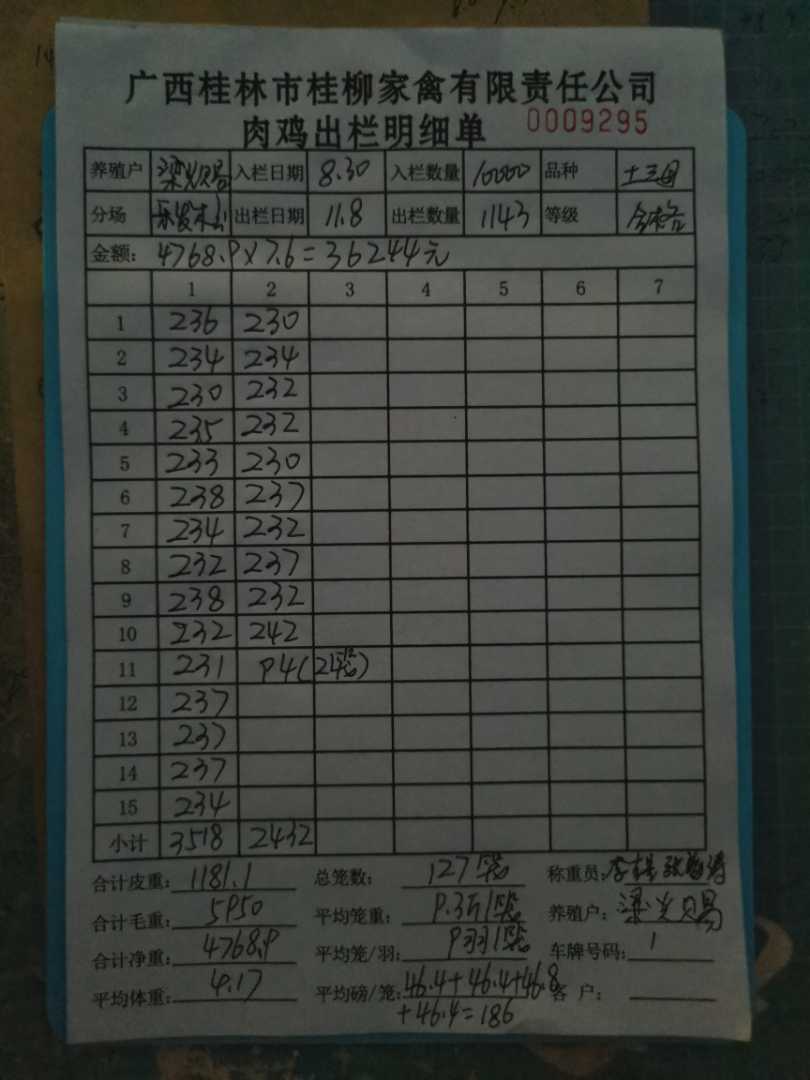 广西桂林市桂柳家禽有限责任公司
肉鸡出栏明细单 0009295
养殖户 梁光贝易 入栏日期 8.30 入栏数量 10000 品种 土三目
分场 出栏日期 11.8 出栏数量 1143 等级 合格
金额: 4768.9×7.6=36244元
1 2 3 4 5 6 7
1 236 230
2 234 234
3 230 232
4 235 232
5 233 230
6 238 237
7 234 232
8 232 237
9 238 232
10 232 242
11 231 94(2笼)
12 237
13 237
14 237
15 234
小计 3518 2432
合计皮重: 1181.1 总笼数: 127笼 称重员:
合计毛重: 5950 平均笼重: 9.3斤/笼 养殖户: 梁光贝易
合计净重: 4768.9 平均笼/羽: 9羽/笼 车牌号码: 1
平均体重: 4.17 平均磅/笼: 46.4+46.4+46.8 客户:
+46.4=186